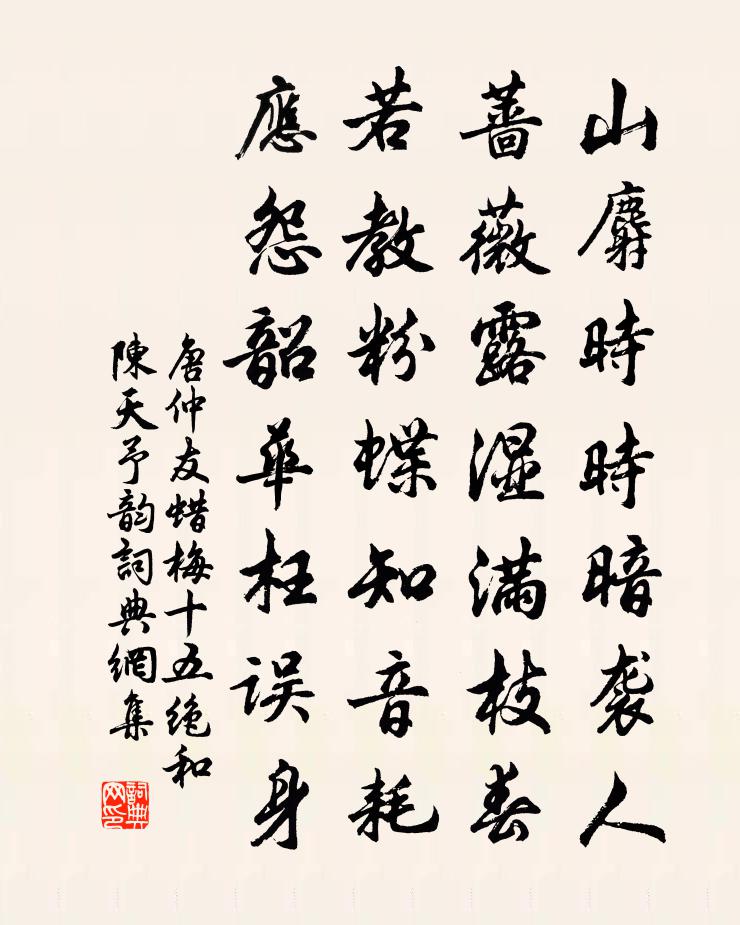 山麝時時暗袭人
薔薇露湿滿枝春
若教粉蝶知音耗
應怨韶華枉误身
唐仲友蜡梅十五绝和
陳天予韵詞典網集
詞典网印